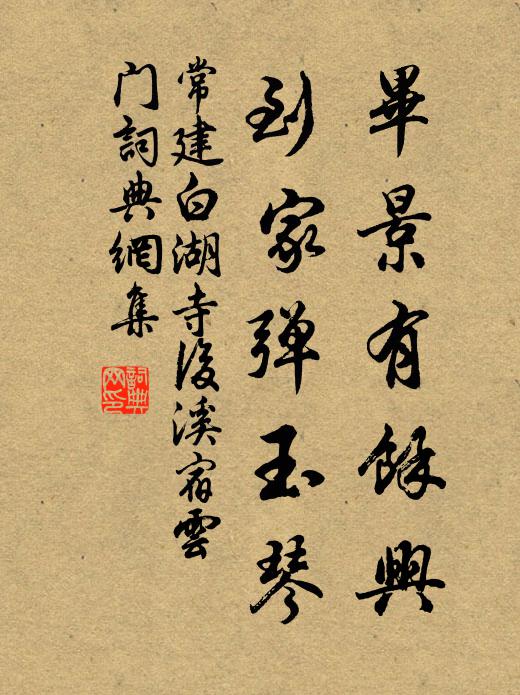 畢景有餘興
到家弹玉琴
常建白湖寺後溪宿雲
门詞典網集
詞典
网印